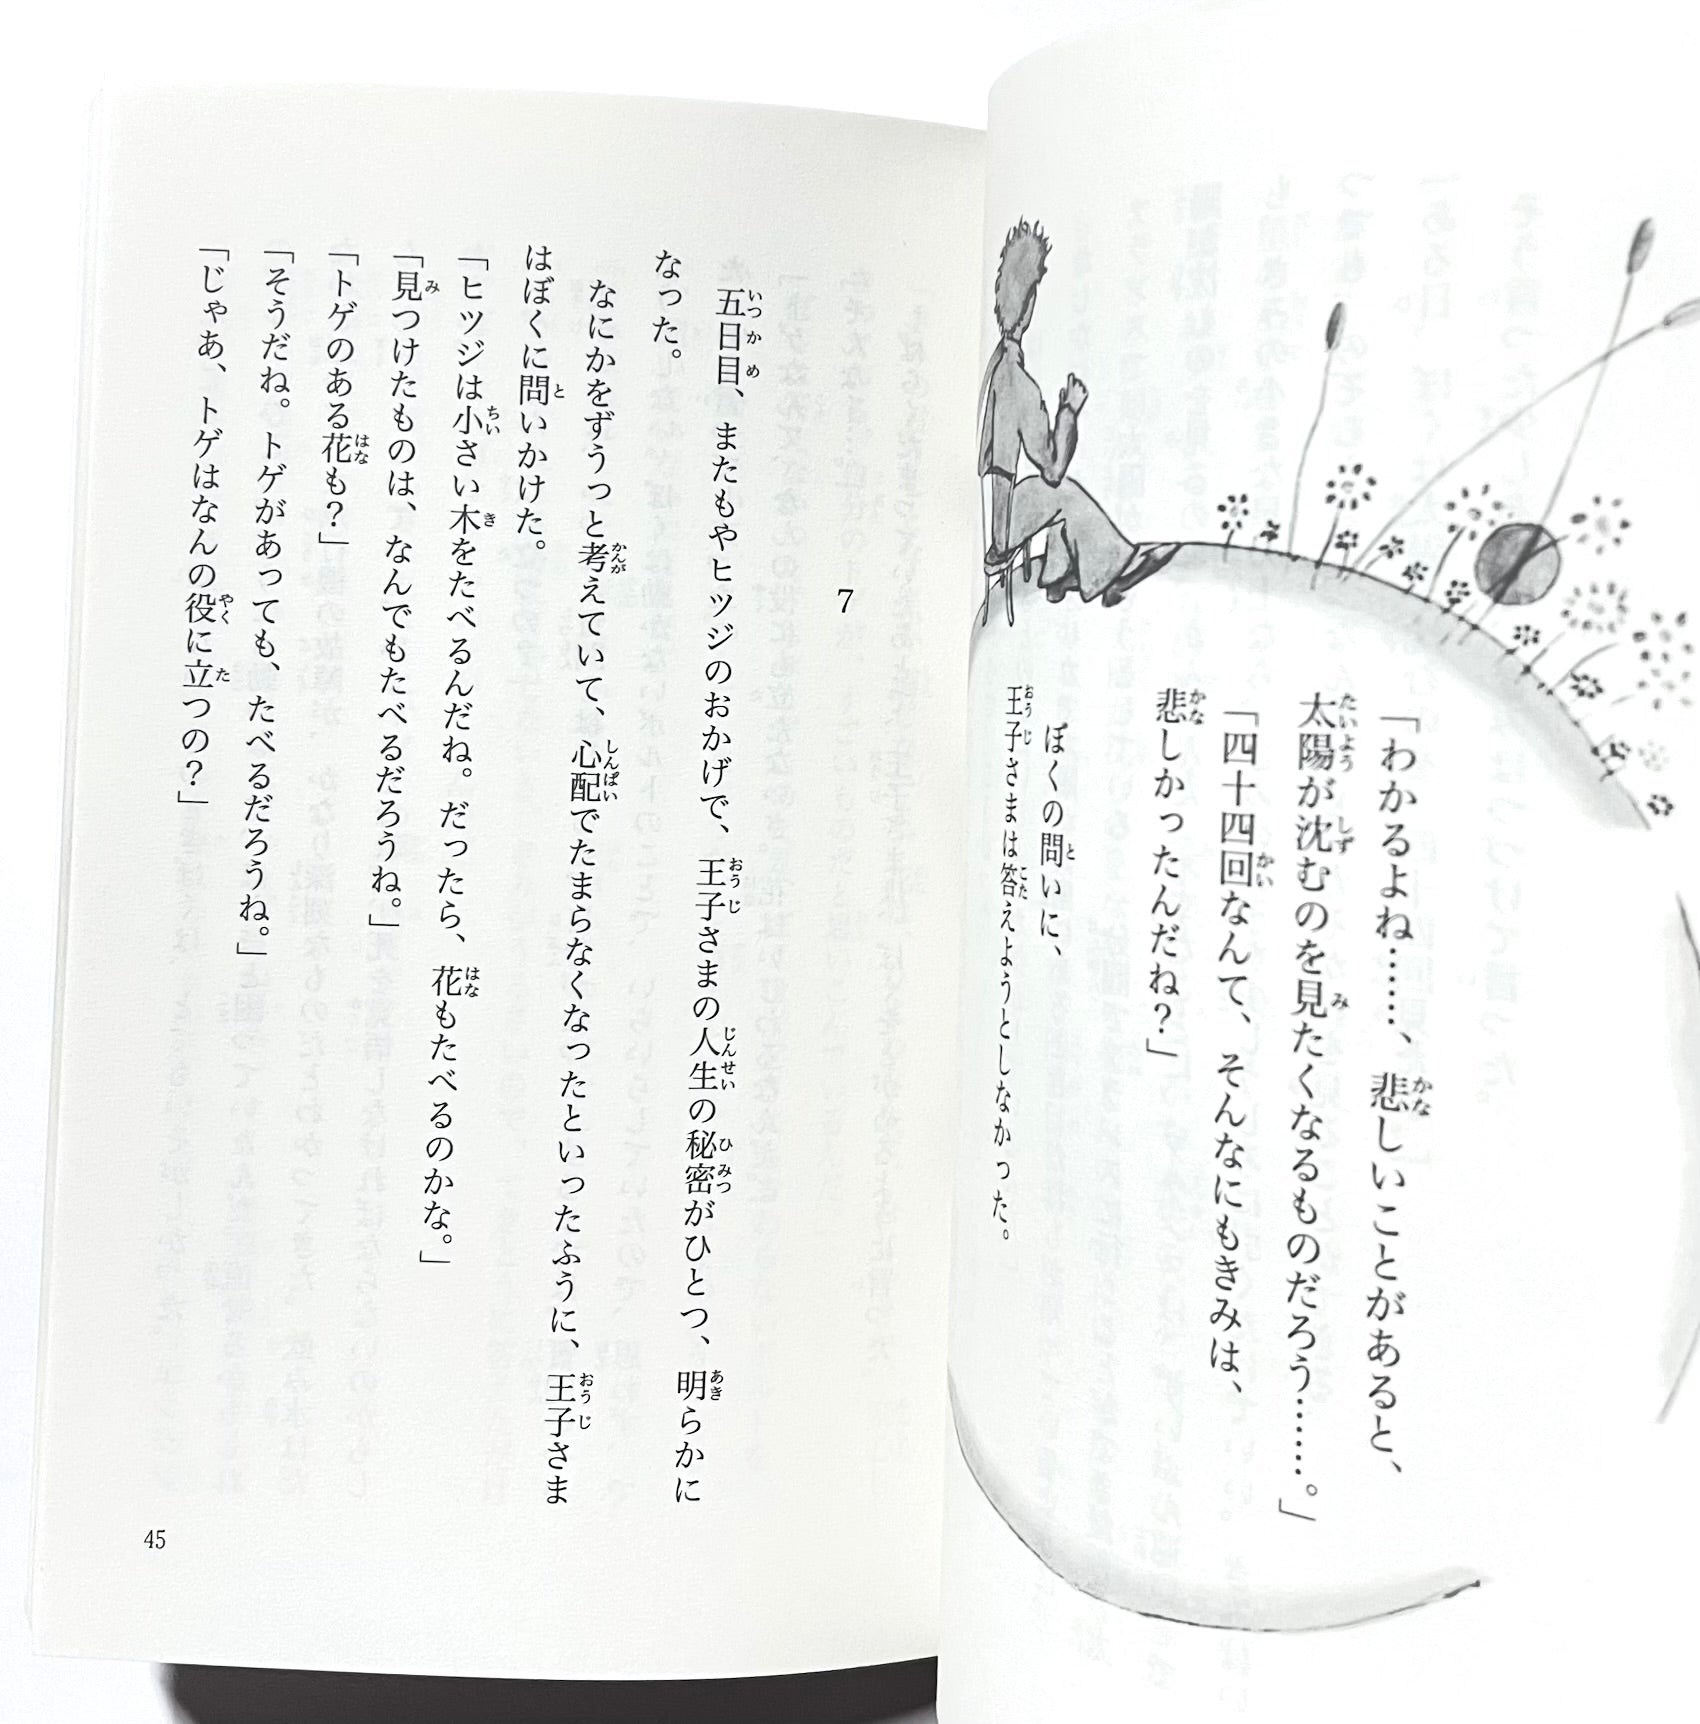 「わかるよね……、悲しいことがあると、
太陽が沈むのを見たくなるものだろう……。」
「四十四回なんて、そんなにもきみは、
悲しかったんだね？」
ぼくの問いに、
王子さまは答えようとしなかった。
7
五日目、またもやヒツジのおかげで、王子さまの人生の秘密がひとつ、明らかに
なった。
なにかをずうっと考えていて、心配でたまらなくなったといったふうに、王子さま
はぼくに問いかけた。
「ヒツジは小さい木をたべるんだね。だったら、花もたべるのかな。」
「見つけたものは、なんでもたべるだろうね。」
「トゲのある花も？」
「そうだね。トゲがあっても、たべるだろうね。」
「じゃあ、トゲはなんの役に立つの？」
45